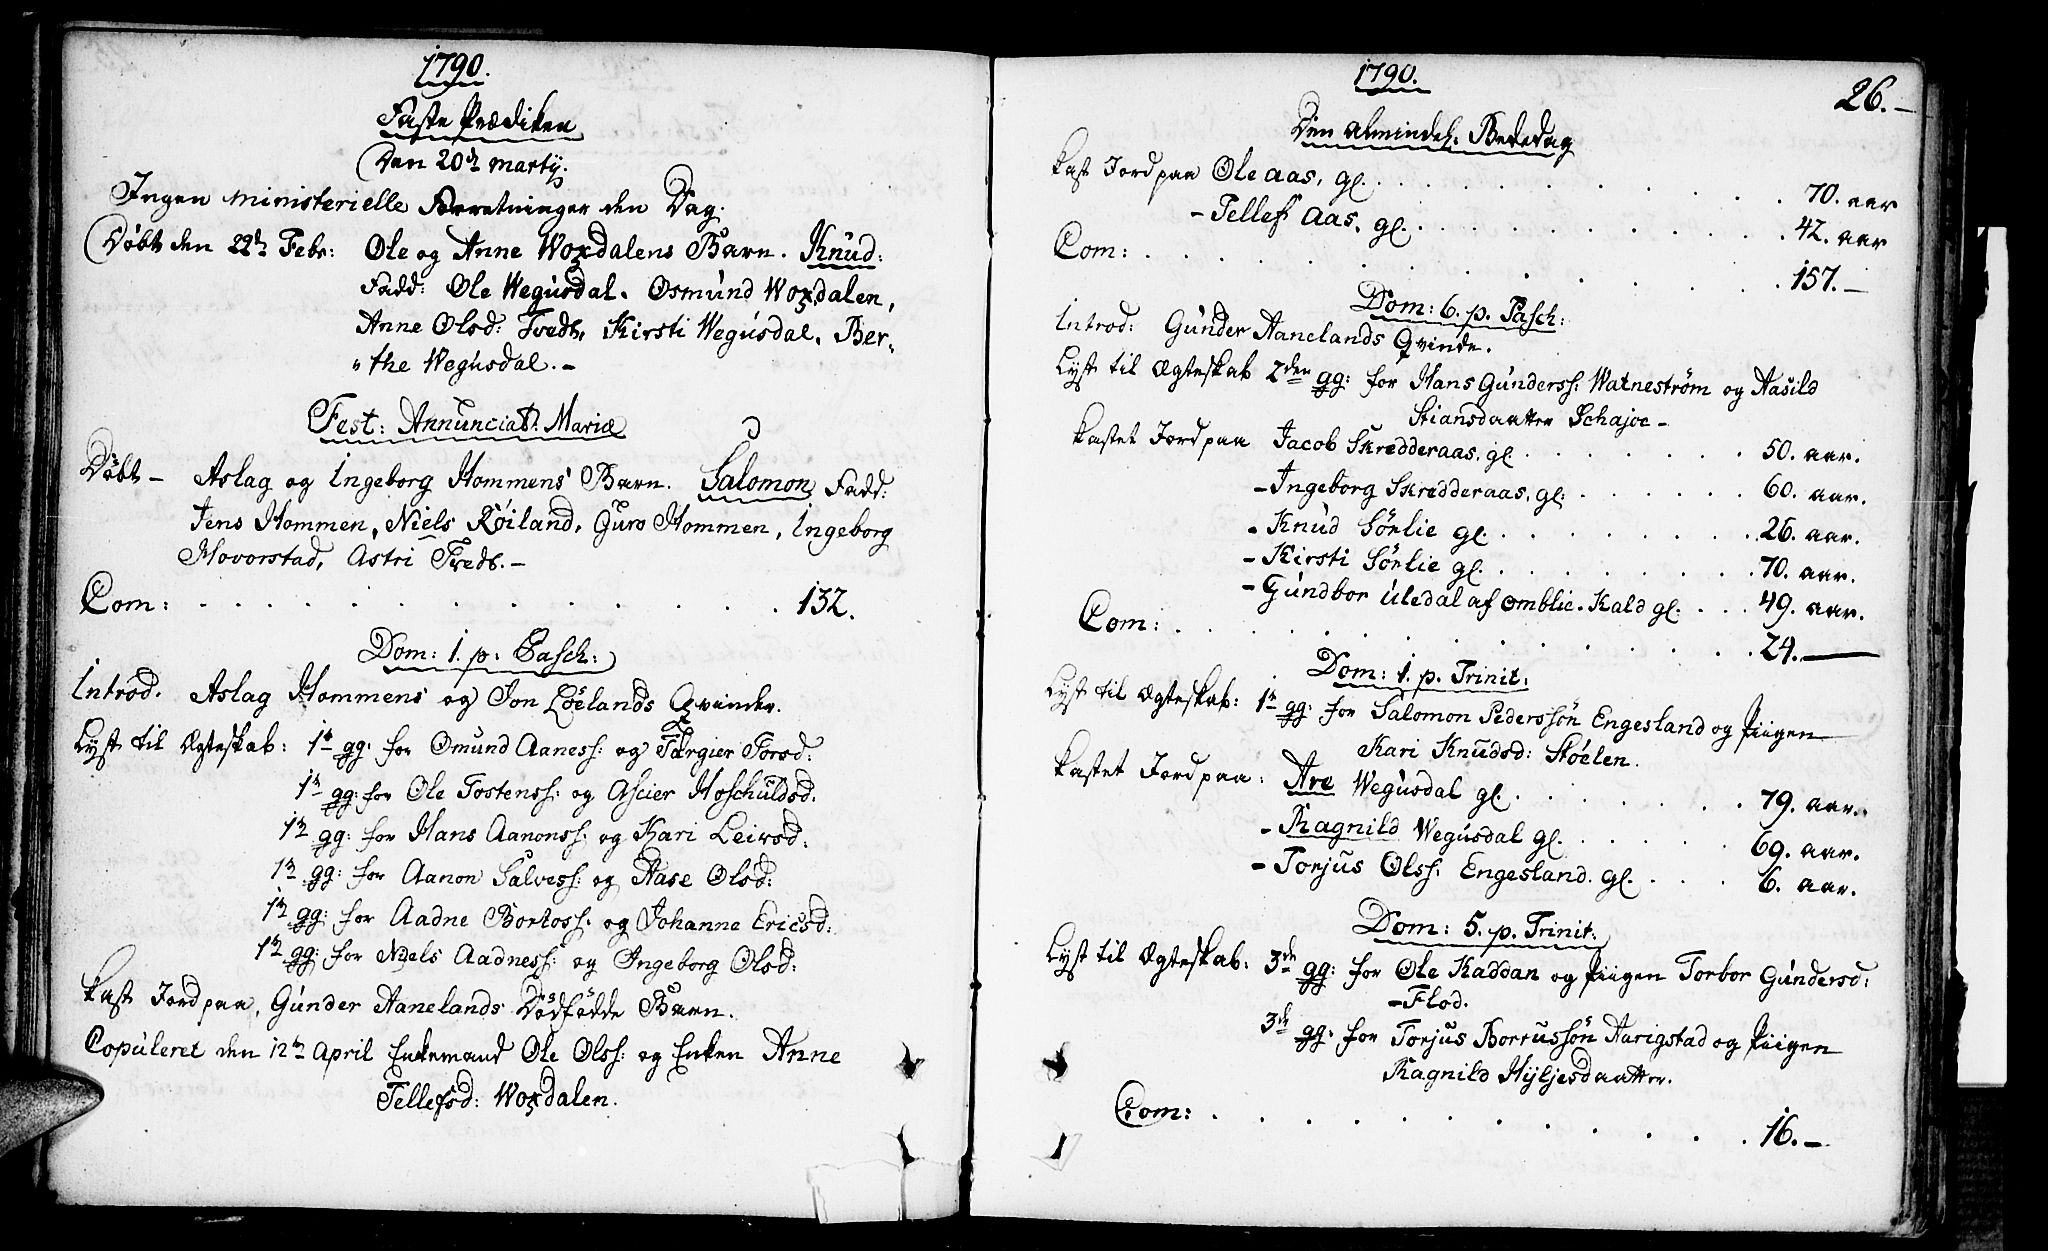 1790.
Faste Prædiken
Den 20de Martij.
Ingen ministerielle Forretninger den Dag.
Døbt den 22de Febr: Ole og Anne Woxdalens Barn. Knud:
Fadd: Ole Wegusdal. Osmund Woxdalen,
Anne Olsd: Tvedt, Kirsti Wegusdal, Ber-
"the Wegusdal. -
Fest: Annunciat: Mariæ
Døbt - Aslag og Ingeborg Hommens Barn. Salomon, Fadd:
Jens Hommen, Niels Røiland, Guro Hommen, Ingeborg
Hovorstad, Astri Tvedt. -
Com: . . . . . . . . . . . . 132.
Dom: 1. p: Pasch:
Introd. Aslag Hommens og Jon Løelands Qvinder.
Lyst til Ægteskab: 1te gg: for Omund Aaness: og Torgier Torsd:
1te gg: for Ole Tostenss: og Asier Hoschuldsd:
1te gg: for Hans Aanonss: og Kari Leirsd:
1te gg: for Aanon Salvess: og Aase Olsd:
1te gg: for Aadne Bortoss: og Johanne Ericsd:
1te gg: for Niels Aadness: og Ingeborg Olsd:
Kast Jord paa, Gunder Aanelands Dødfødde Barn.
Copuleret den 12te April Enkemand Ole Olss: og Enken Anne
Tellefsd: Woxdalen.
1790.
26. -
Den almindel: Bededag
Kast Jord paa Ole Aas, gl. . . . . . . . . . . 70. aar
- Tellef Aas, gl. . . . . . . . . . . 42. aar
Com: . . . . . . . . . . . . 157. -
Dom: 6. p. Pasch:
Introd: Gunder Aanelands Qvinde.
Lyst til Ægteskab 2den gg: for Hans Gunderss: Watneström og Aasild
Stiansdaatter Schajoe -
Kastet Jord paa Jacob Skredderaas, gl . . . . . . . 50. aar.
- Ingeborg Skredderaas, gl. . . . . . . 60. aar.
- Knud Sørlie gl. . . . . . . . . 26. aar.
- Kirsti Sørlie gl. . . . . . . . . 70. aar.
- Gundbor Uledal af Omblie-Kald gl. . . . 49. aar.
Com: . . . . . . . . . . . 24. -
Dom: 1. p. Trinit:
Lyst til Ægteskab: 1te gg: for Salomon Pederssøn Engesland og Piigen
Kari Knudsd: Støelen.
Kastet Jord paa: Are Wegusdal gl. . . . . . . . 79. aar.
- Ragnild Wegusdal gl. . . . . . 69. aar.
- Torjus Olss: Engesland. gl. . . . 6. aar.
Dom: 5. p. Trinit:
Lyst til Ægteskab: 3de gg: for Ole Kaddan og Piigen Torbor Gundersd:
- Flod.
3de gg: for Torjus Borrussøn Aarigstad og Piigen
Ragnild Hyljesdaatter.
Com: . . . . . . . . . . . 16. -